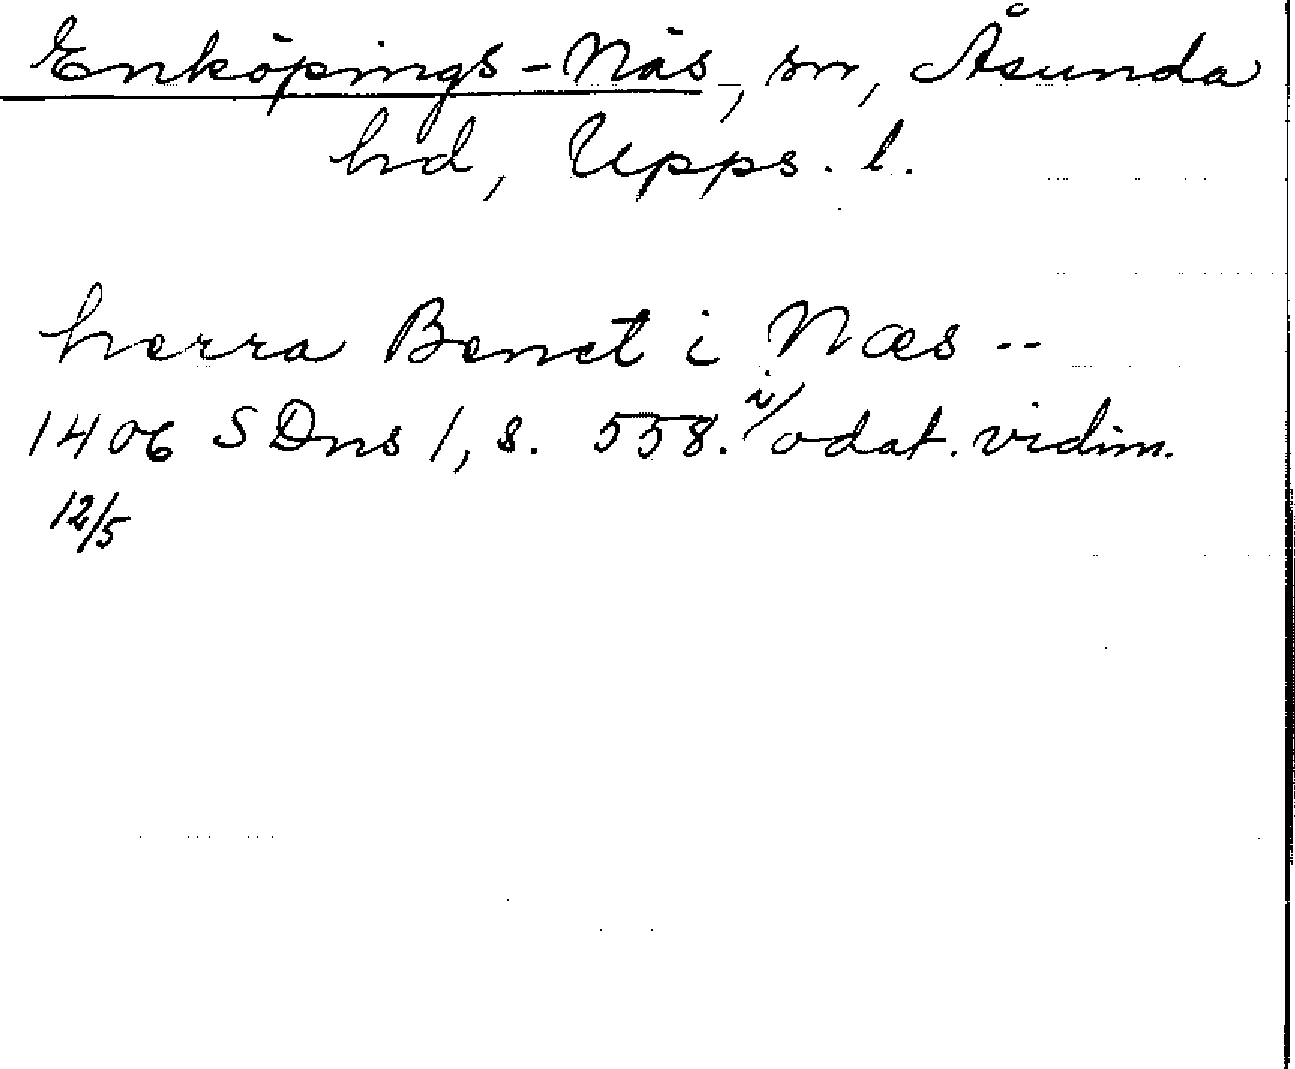 Enköpings-Näs, sn, Åsunda
hd, Upps. l.
herra Benct i Næs --
1406 SDns 1, s. 558. i/ odat. vidim.
12/5